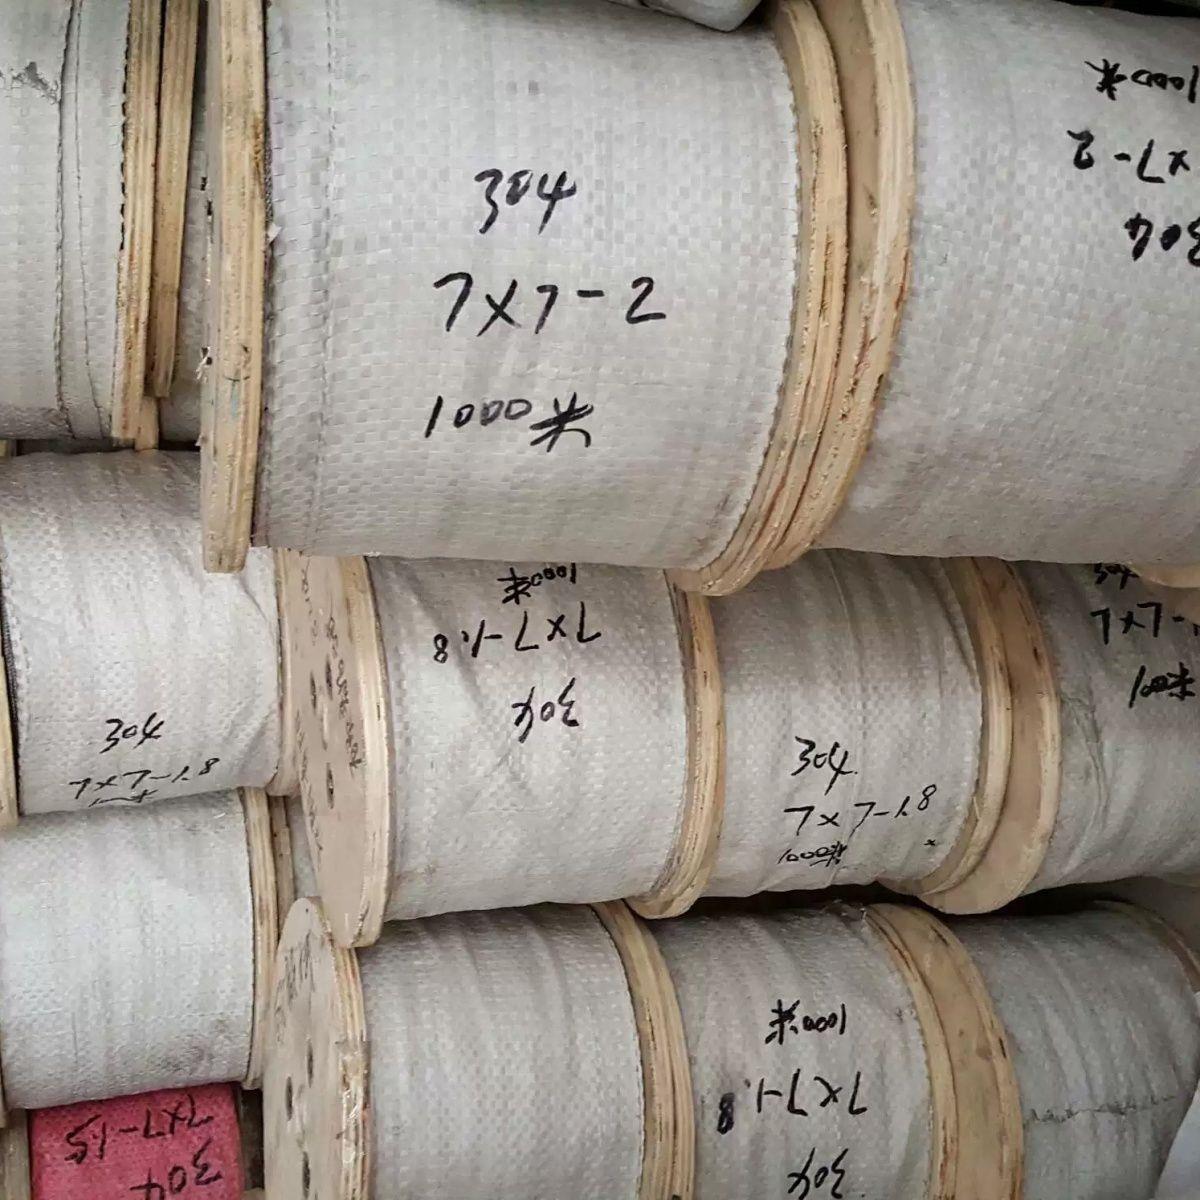 304
7×7-2
1000米
1000米
×7-2
304
304
7×7-1.8
1000米
7×7-1.8
304
304
7×7-1.8
1000米
304
7×7-
1000米
1000米
7×7-1.8
304
7×7-1.5
304